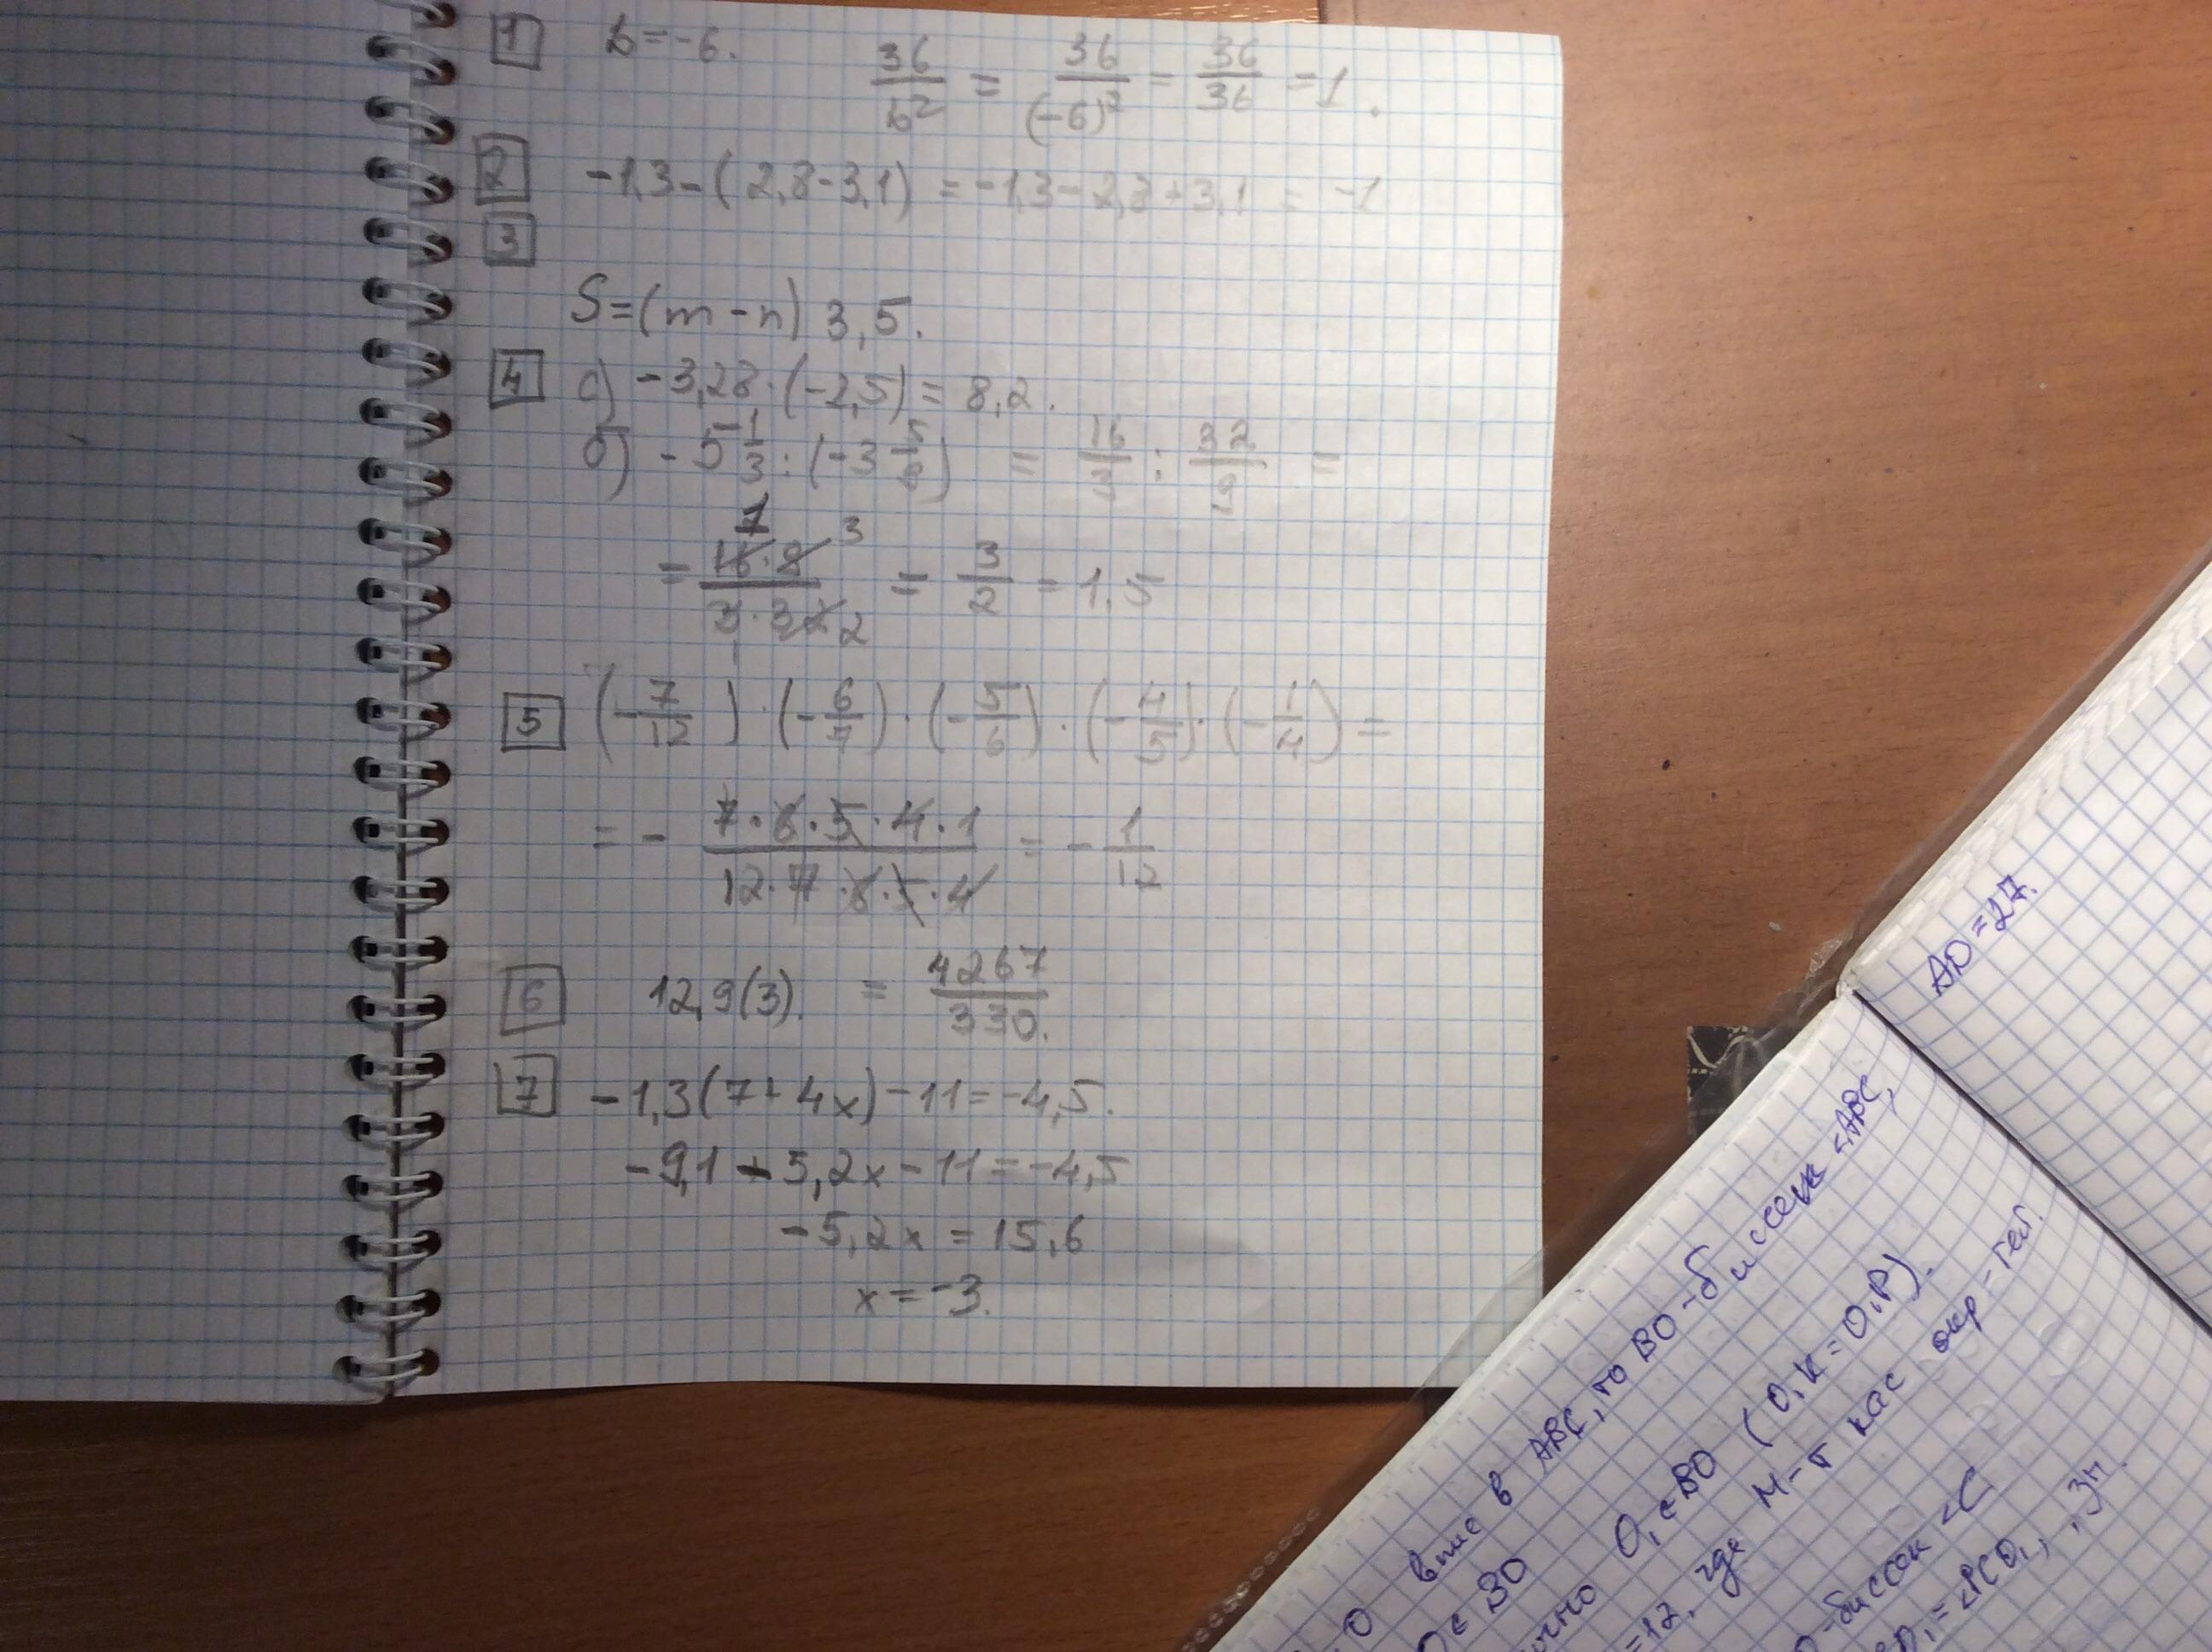 1 b=-6. 36/b² = 36/(-6)² = 36/36 = 1.
2 -1,3-(2,8-3,1) = -1,3-2,8+3,1 = -1
3
S=(m-n) 3,5.
4 а) -3,28·(-2,5)= 8,2.
б) -5 1/3 : (-3 5/9) = 16/3 : 32/9 =
= 16·9/3·32 = 3/2 = 1,5
5 (-7/12)·(-6/7)·(-5/6)·(-4/5)·(-1/4)=
= - 7·6·5·4·1/12·7·6·5·4 = - 1/12
6 12,9(3). = 4267/330.
7 -1,3(7+4x)-11=-4,5.
-9,1-5,2x-11=-4,5
-5,2x=15,6
x=-3.
AD=27.
O впис в ABC, то BO-биссек <ABC,
BO (O₁K=O₁P).
O₁∈BO
=12, где M-т кас окр-тей.
-биссек <C
=<PCO₁,